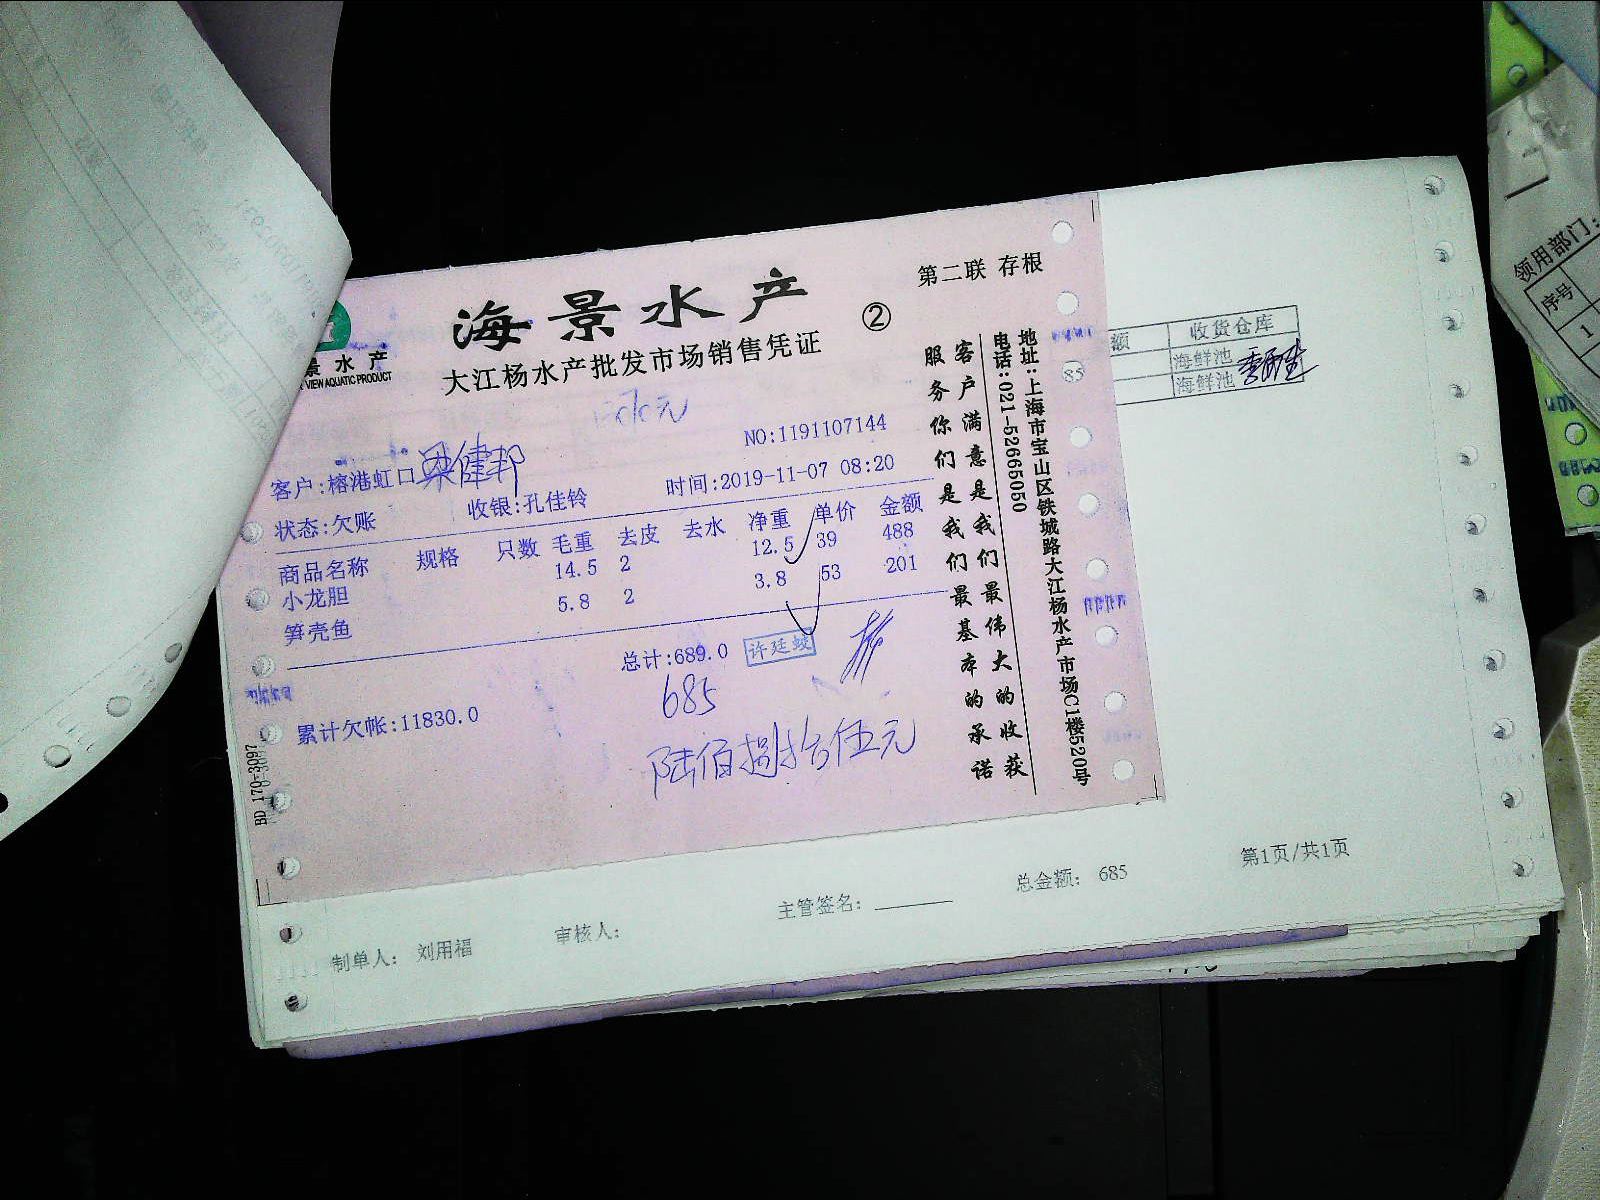 海景水产
②
第二联 存根
景水产
VIEW AQUATIC PRODUCT
大江杨水产批发市场销售凭证
NO:1191107144
客户:榕港虹口 梁健邦
时间:2019-11-07 08:20
状态:欠账
收银:孔佳铃
商品名称 规格 只数 毛重 去皮 去水 净重 单价 金额
小龙胆 14.5 2 12.5 39 488
笋壳鱼 5.8 2 3.8 53 201
总计:689.0
许廷蛟
685
累计欠帐:11830.0
陆佰捌拾伍元
BD 170-3097
客户满意是我们最伟大的收获
服务你们是我们最基本的承诺
地址:上海市宝山区铁城路大江杨水产市场C1楼520号
电话:021-52665050
85
额 收货仓库
海鲜池
海鲜池
制单人: 刘用福
审核人:
主管签名:
总金额: 685
第1页/共1页
领用部门:
序号
1